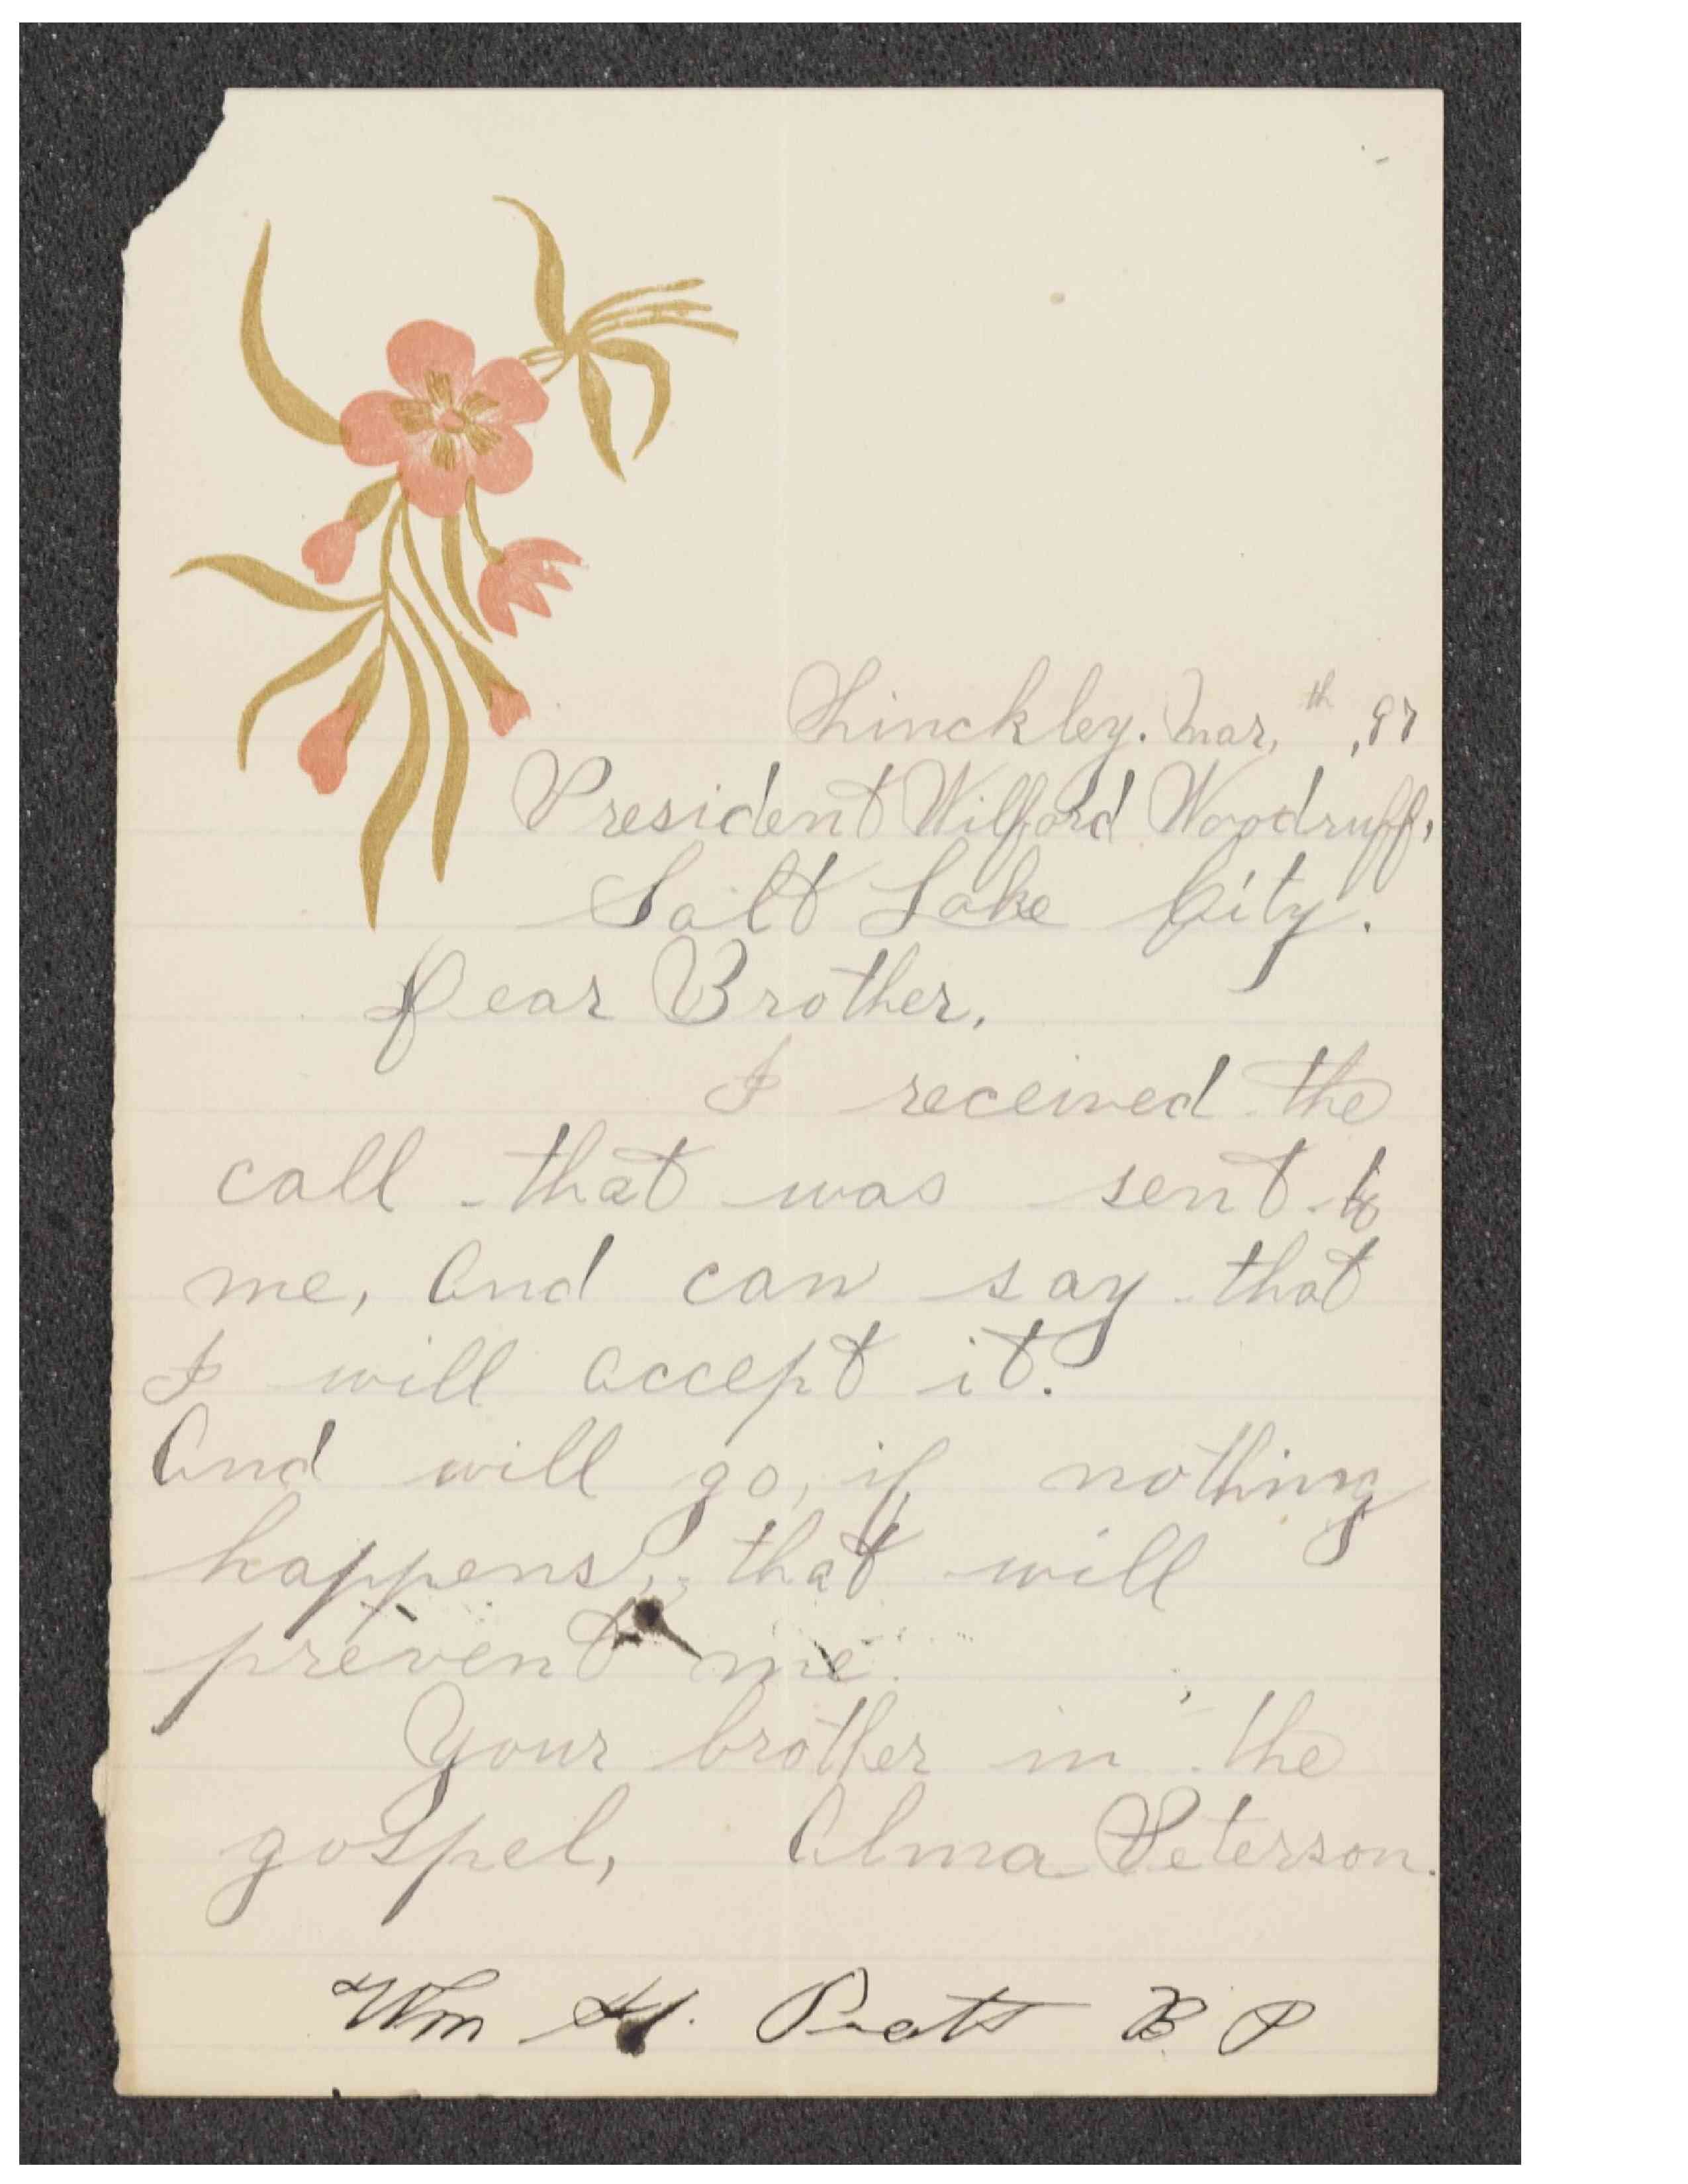 Hinckley. Mar, th ,97
President Wilford Woodruff,
Salt Lake City.
Dear Brother,
I received the
call that was sent to
me, And can say that
I will accept it.
And will go, if nothing
happens, that will
prevent me.
Your brother in the
gospel, Alma Peterson.
Wm H. Pratt B P